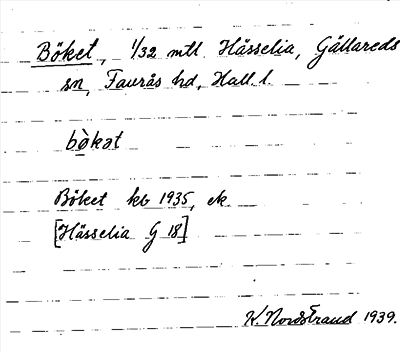 Böket, 1/32 mtl Hässelia, Gällareds
sn, Faurås hd, Hall. l.
bò̤kət
Böket kb 1935, ek
[Hässelia G 18]
K. Nordstrand 1939.